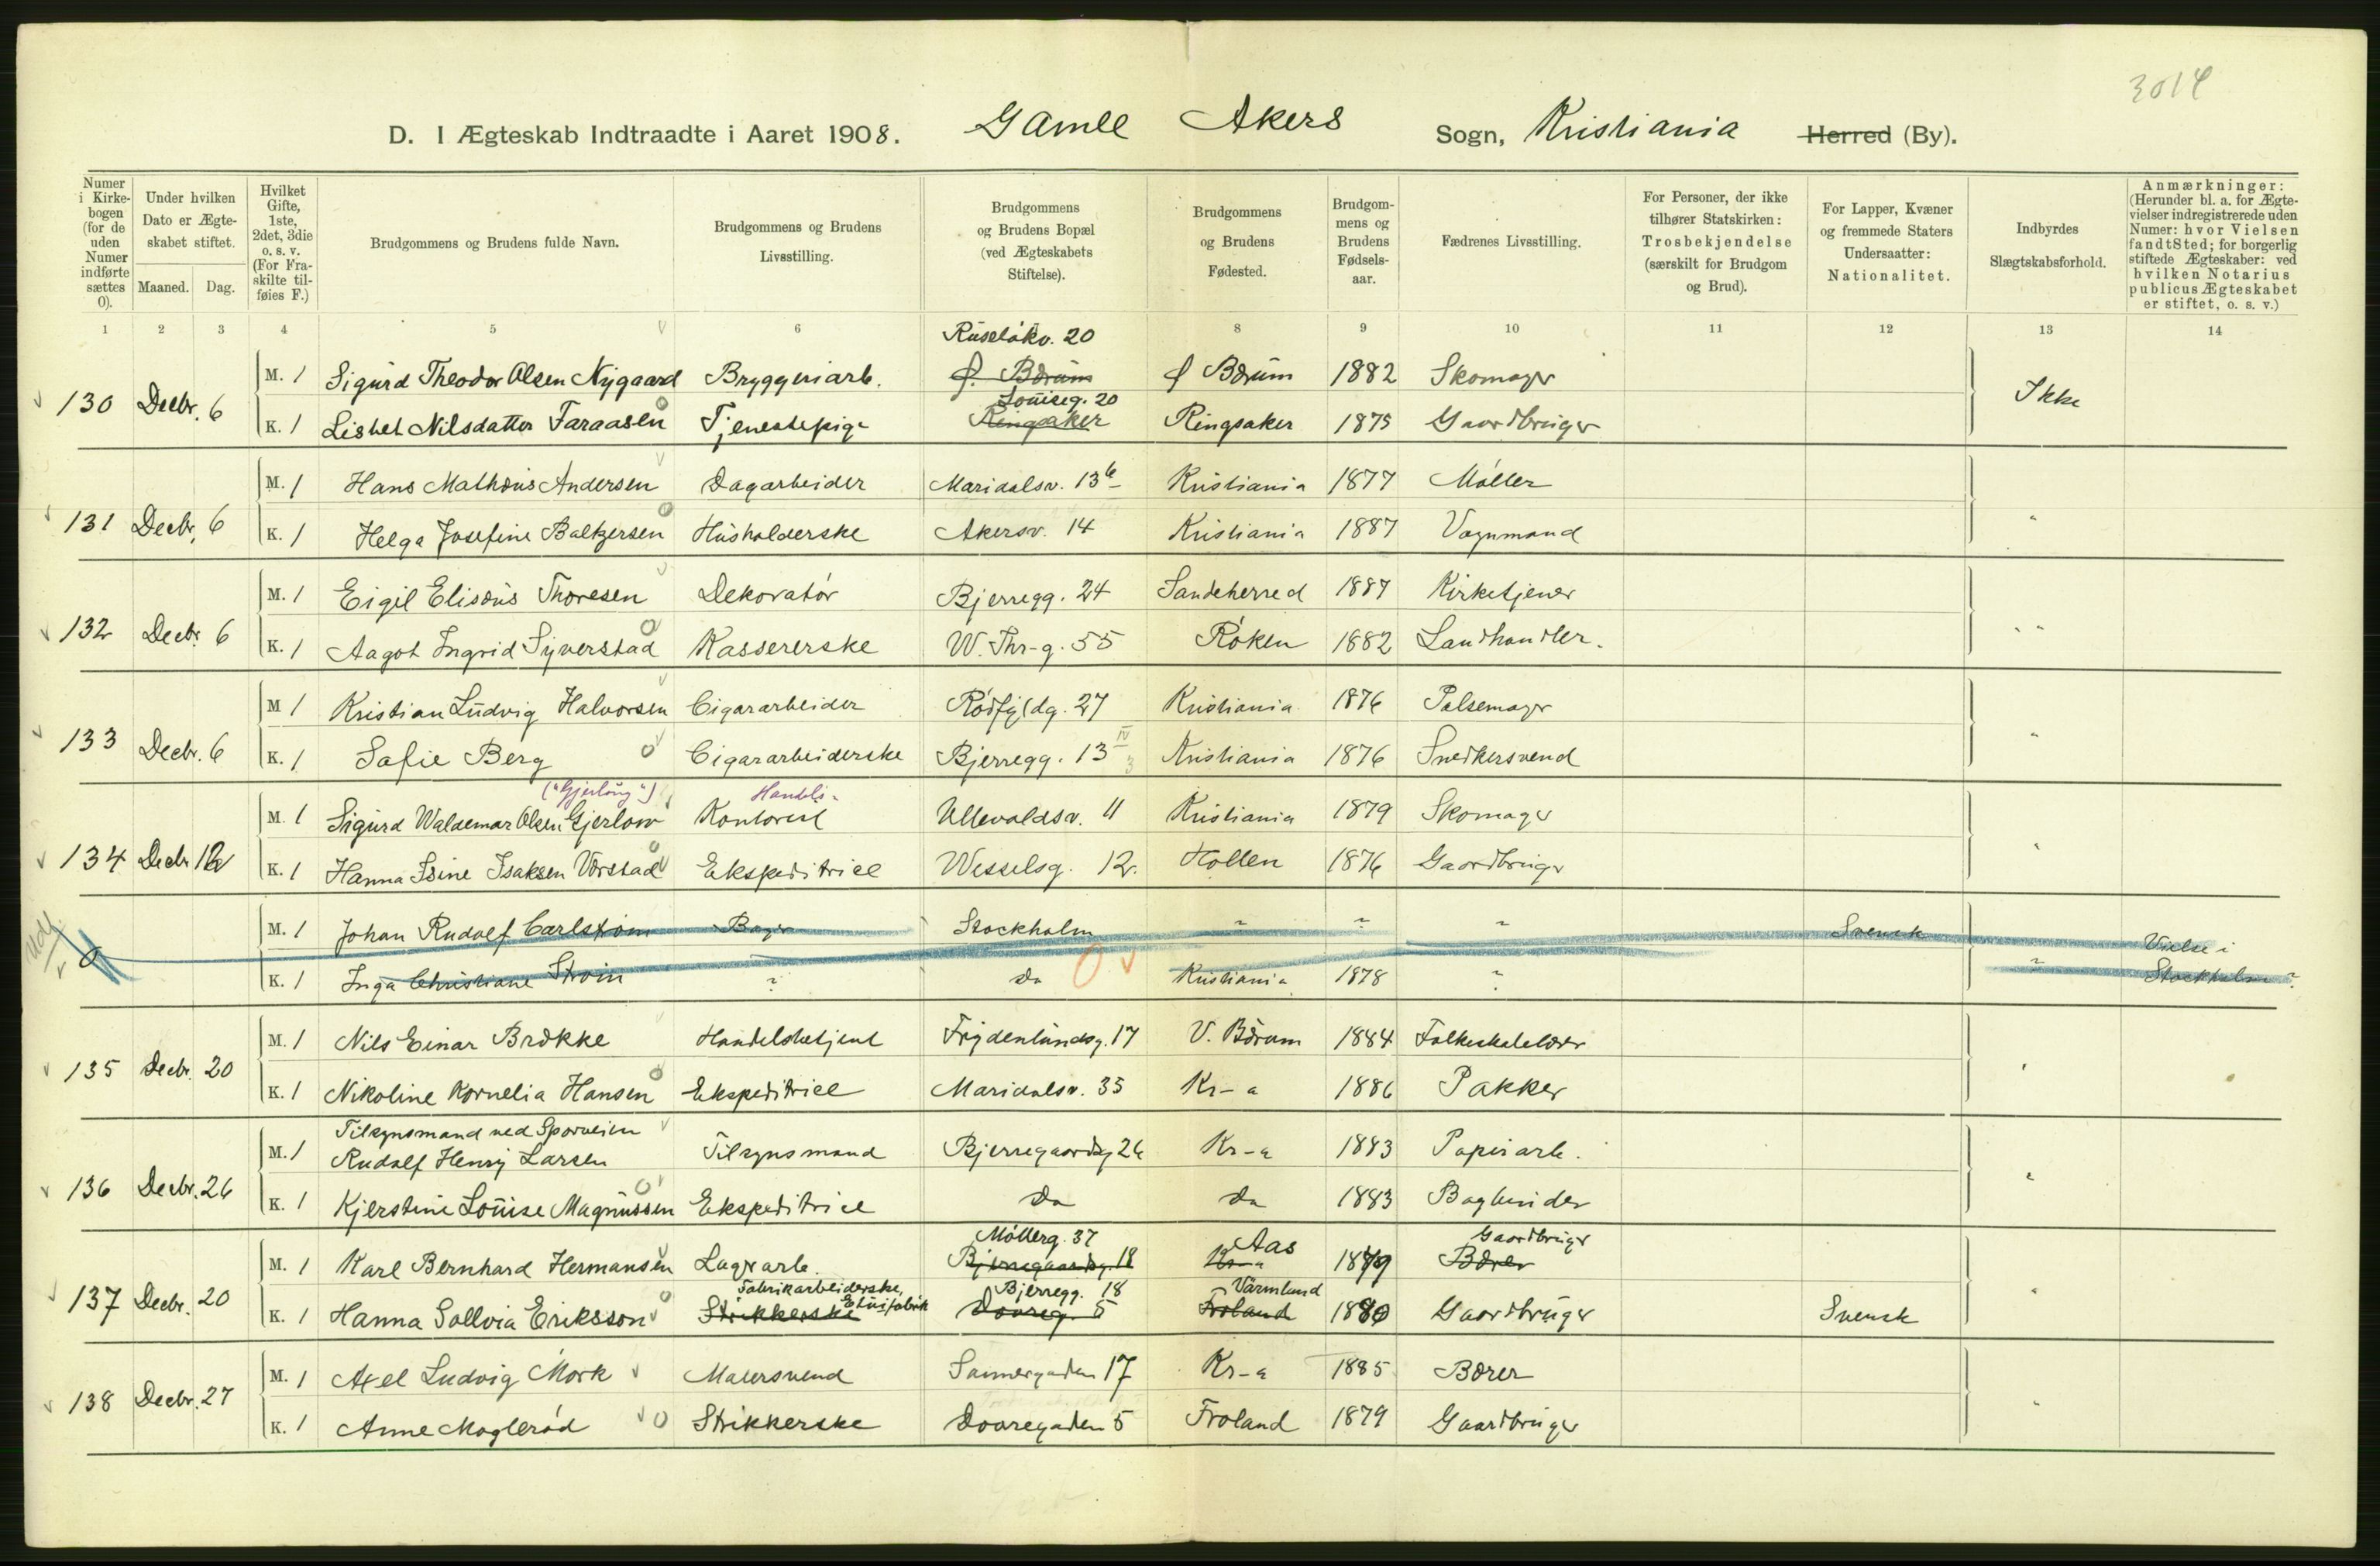 3014
D. I Ægteskab Indtraadte i Aaret 1908. Gamle Akers Sogn, Kristiania Herred (By).
Numer i Kirkebogen (for de uden Numer indførte sættes 0).
Under hvilken Dato er Ægteskabet stiftet. Maaned. Dag.
Hvilket Gifte, 1ste, 2det, 3die o. s. v. (For Fraskilte tilføies F.)
Brudgommens og Brudens fulde Navn.
Brudgommens og Brudens Livsstilling.
Brudgommens og Brudens Bopæl (ved Ægteskabets Stiftelse).
Brudgommens og Brudens Fødested.
Brudgommens og Brudens Fødselsaar.
Fædrenes Livsstilling.
For Personer, der ikke tilhører Statskirken: Trosbekjendelse (særskilt for Brudgom og Brud).
For Lapper, Kvæner og fremmede Staters Undersaatter: Nationalitet.
Indbyrdes Slægtskabsforhold.
Anmærkninger: (Herunder bl. a. for Ægtevielser indregistrerede uden Numer: hvor Vielsen fandt Sted; for borgerlig stiftede Ægteskaber: ved hvilken Notarius publicus Ægteskabet er stiftet, o. s. v.)
1 2 3 4 5 6 8 9 10 11 12 13 14
Ruseløkv. 20
M. 1 Sigurd Theodor Olsen Nygaard Bryggeriarb. Bærum Bærum 1882 Skomager
130 Decbr. 6 Ikke
Louiseg. 20
K. 1 Lisbet Nilsdatter Faraasen Tjenestepige Ringsaker Ringsaker 1875 Gaardbruger
M. 1 Hans Mathæus Andersen Dagarbeider Maridalsv. 13b Kristiania 1877 Møller
131 Decbr. 6 "
K. 1 Helga Josefine Baltzersen Husholderske Akersv. 14 Kristiania 1887 Vognmand
M. 1 Eigil Elisæus Thoresen Dekoratør Bjerregg. 24 Sandeherred 1887 Kirketjener
132 Decbr. 6 " "
K. 1 Aagot Ingrid Syverstad Kassererske W. Thr-g. 55 Røken 1882 Landhandler.
M 1 Kristian Ludvig Halvorsen Cigararbeider Rødfyldg. 27 Kristiania 1876 Pølsemager
133 Decbr. 6 "
K. 1 Sofie Berg Cigararbeiderske Bjerregg. 13 IV Kristiania 1876 Snedkersvend
("Gjerlöug") Handels-
M. 1 Sigurd Waldemar Olsen Gjerlow Kontorist Ullevoldsv. 11 Kristiania 1879 Skomager
134 Decbr 12 "
K. 1 Hanna Isine Isaksen Vorstad Ekspeditrice Wesselsg. 12. Hollen 1876 Gaardbruger
M. 1 Johan Rudolf Carlstrøm Bager Stockholm " " " Svensk
0 Vielse i
K. 1 Inga Christiane Strøm ? Do Kristiania 1878 " " Stockholm ?
M. 1 Nils Einar Brække Handelsbetjent Frydenlundsg. 17 V. Bærum 1884 Folkeskolelærer
135 Decbr. 20 "
K. 1 Nikoline Kornelia Hansen Ekspeditrice Maridalsv. 35 Kr-a 1886 Pakker
Tilsynsmand ved Sporveien
M. 1 Rudolf Henry Larsen Tilsynsmand Bjerregaardsg 26 Kr-a 1883 Papirarb.
136 Decbr. 26 "
K. 1 Kjerstine Louise Magnussen Ekspeditrice Do Do 1883 Bogbinder
Møllerg. 37 Aas Gaardbruger
M. 1 Karl Bernhard Hermansen Lagerarb. Bjerregaardsg. 18 Kr-a 1879 Bærer
137 Decbr. 20 "
Fabrikarbeiderske, Etuifabrik Bjerregg. 18 Värmland
K. 1 Hanna Sollvia Eriksson Strikkerske Dovreg. 5 Froland 1880 Gaardbruger Svensk
M. 1 Axel Ludvig Mork Malersvend Sannergaden 17 Kr-a 1885 Bærer
138 Decbr. 27 "
K. 1 Anne Moglerød Strikkerske Dovregaden 5 Froland 1879 Gaardbruger